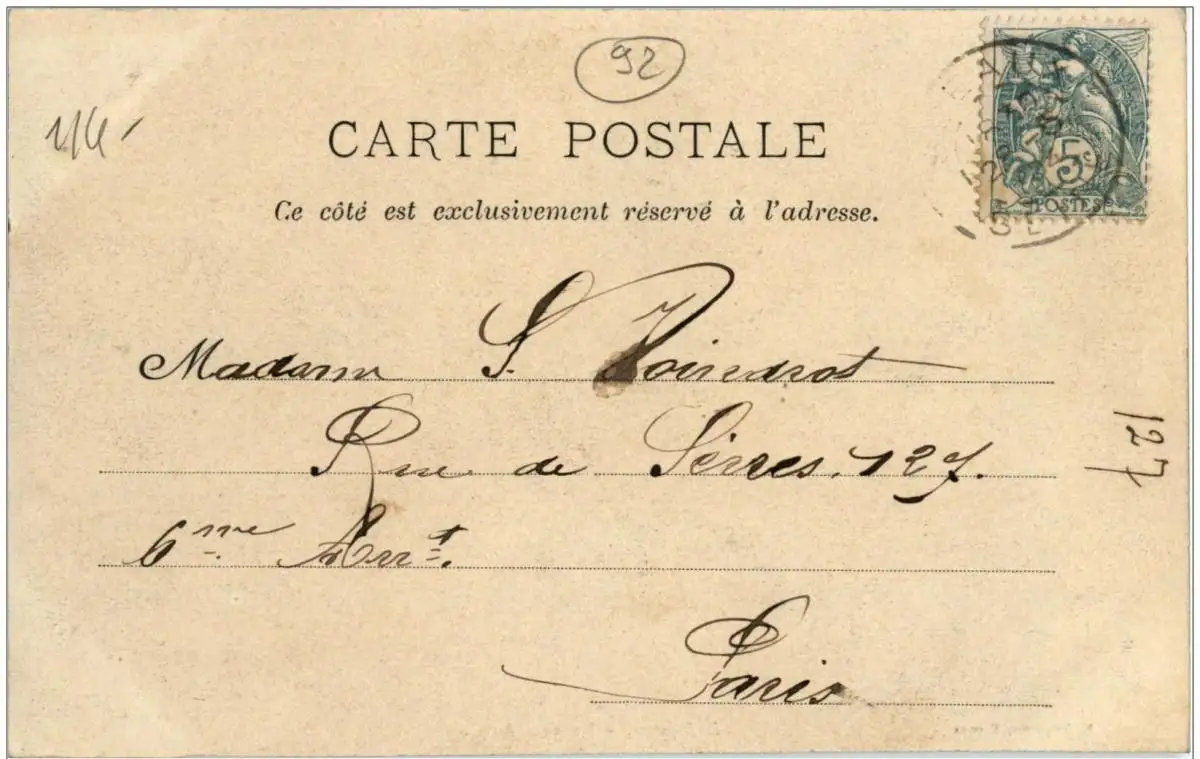 92
CARTE POSTALE
Ce côté est exclusivement réservé à l'adresse.
5
POSTES
Madame S. Voindrot
Rue de Sèvres. 127.
127
6me Arrt.
Paris